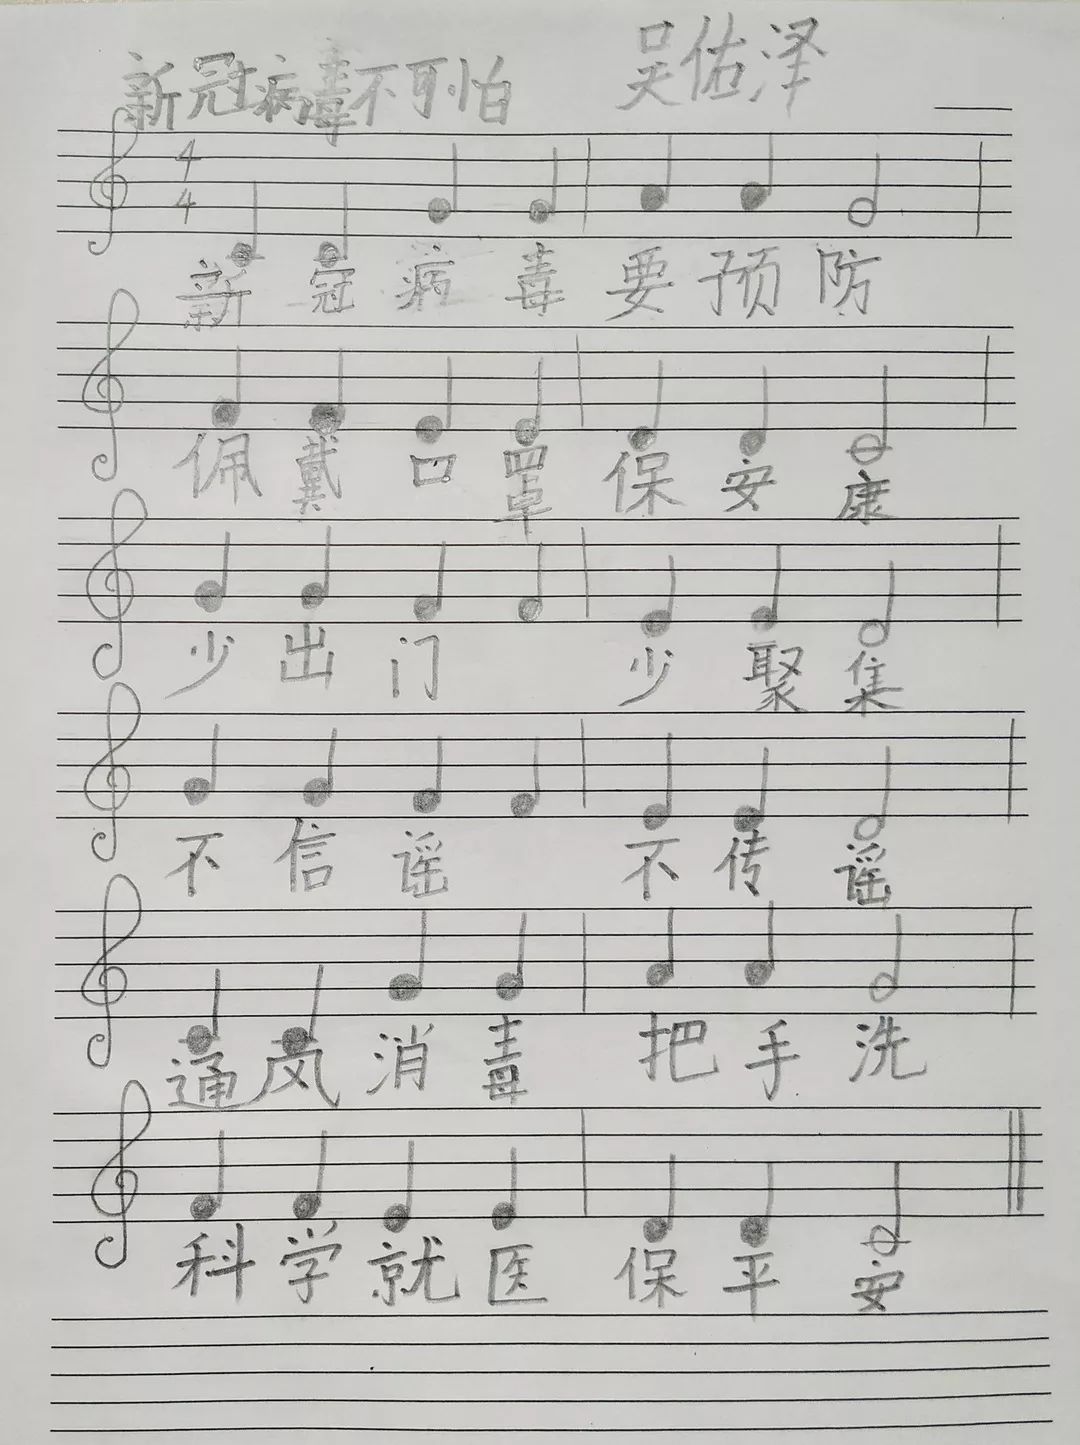 新冠病毒不可怕 吴佑泽
4
4
新冠病毒要预防
佩戴口罩保安康
少出门 少聚集
不信谣 不传谣
通风消毒 把手洗
科学就医 保平安